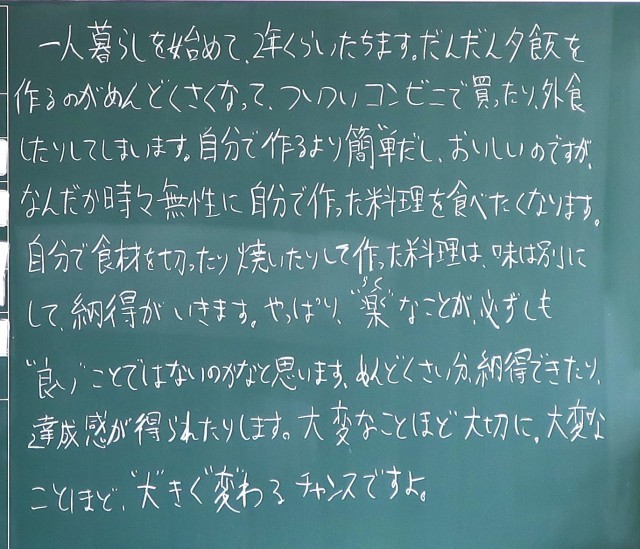 一人暮らしを始めて、2年くらいたちます。だんだん夕飯を
作るのがめんどくさくなって、ついついコンビニで買ったり、外食
したりしてしまいます。自分で作るより簡単だし、おいしいのですが、
なんだか時々無性に自分で作った料理を食べたくなります。
自分で食材を切ったり焼いたりして作った料理は、味は別に
して、納得がいきます。やっぱり、"楽"なことが、必ずしも
"良い"ことではないのかなと思います。めんどくさい分、納得できたり、
達成感が得られたりします。大変なことほど大切に。大変な
ことほど、"大"きく"変"わるチャンスですよ。